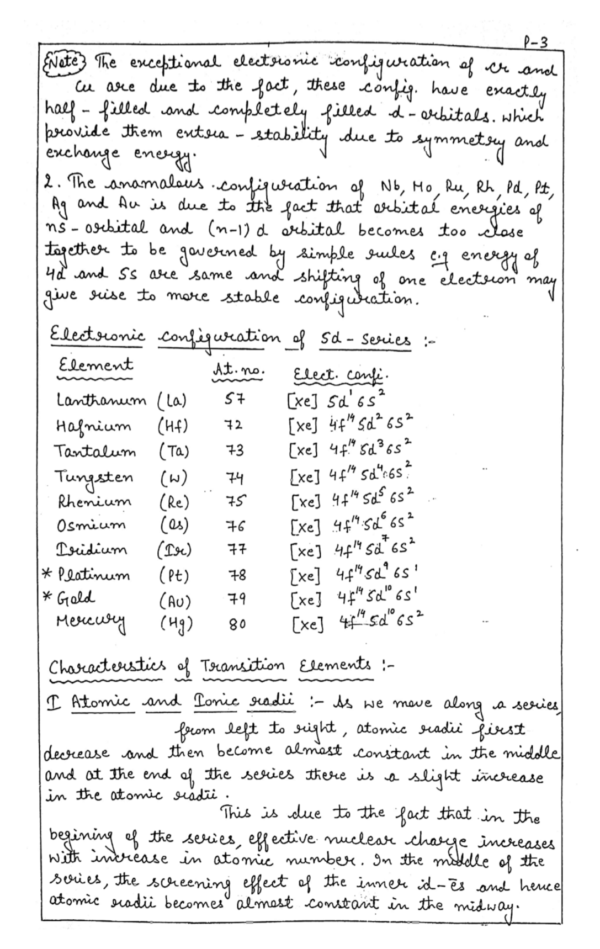 P-3
(Note) The exceptional electronic configuration of cr and
Cu are due to the fact, these config. have exactly
half - filled and completely filled d - orbitals. which
provide them extra - stability due to symmetry and
exchange energy.
2. The anamalous configuration of Nb, Mo, Ru, Rh, Pd, Pt,
Ag and Au is due to the fact that orbital energies of
ns - orbital and (n-1) d orbital becomes too close
together to be governed by simple rules e.g energy of
4d and 5s are same and shifting of one electron may
give rise to more stable configuration.
Electronic configuration of 5d - series :-
Element At. no. Elect. confi.
Lanthanum (La) 57 [xe] 5d¹ 6s²
Hafnium (Hf) 72 [xe] 4f¹⁴ 5d² 6s²
Tantalum (Ta) 73 [xe] 4f¹⁴ 5d³ 6s²
Tungsten (W) 74 [xe] 4f¹⁴ 5d⁴ 6s²
Rhenium (Re) 75 [xe] 4f¹⁴ 5d⁵ 6s²
Osmium (Os) 76 [xe] 4f¹⁴ 5d⁶ 6s²
Iridium (Ir) 77 [xe] 4f¹⁴ 5d⁷ 6s²
* Platinum (Pt) 78 [xe] 4f¹⁴ 5d⁹ 6s¹
* Gold (AU) 79 [xe] 4f¹⁴ 5d¹⁰ 6s¹
Mercury (Hg) 80 [xe] 4f¹⁴ 5d¹⁰ 6s²
Characterstics of Transition Elements :-
I Atomic and Ionic radii :- As we move along a series,
from left to right, atomic radii first
decrease and then become almost constant in the middle
and at the end of the series there is a slight increase
in the atomic radii.
This is due to the fact that in the
begining of the series, effective nuclear charge increases
with increase in atomic number. In the middle of the
series, the screening effect of the inner d-ēs and hence
atomic radii becomes almost constant in the midway.